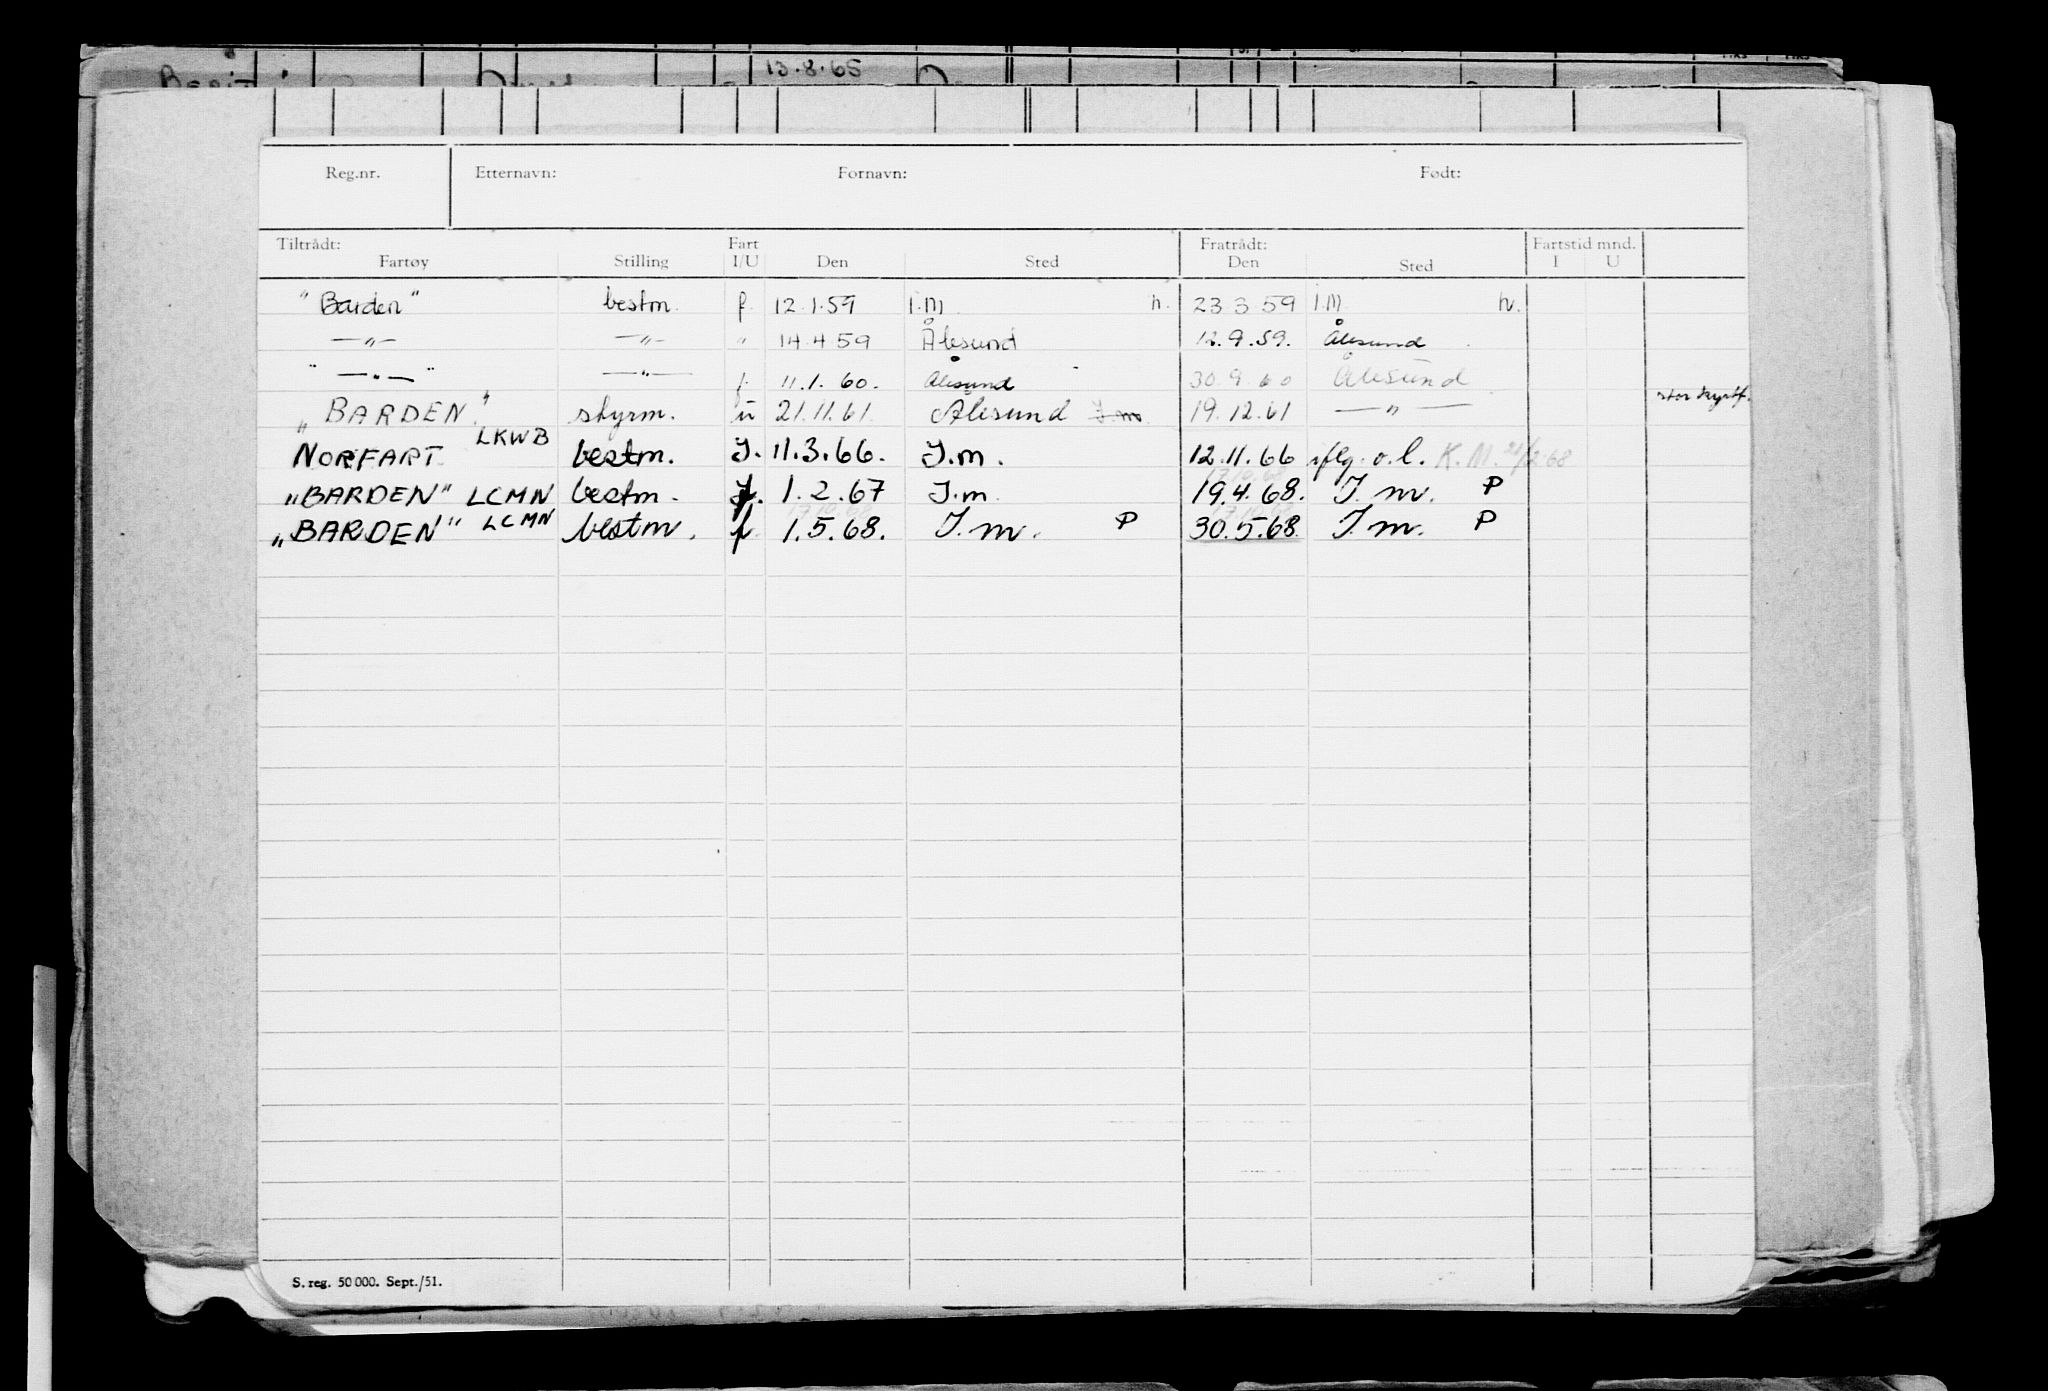 13.8.65
Reg.nr. Etternavn: Fornavn: Født:
Tiltrådt: Fart Fratrådt: Fartstid mnd.
Fartøy Stilling I/U Den Sted Den Sted I U
"Barden" bestm. f. 12.1.59 I.M. h. 23.3.59 I.M. h.
—„— —„— „ 14.4.59 Ålesund 12.9.59. Ålesund
" —„— " —„— f. 11.1.60. Ålesund 30.9.60 Ålesund
„BARDEN" styrm. u 21.11.61. Ålesund I.m. 19.12.61 —„—
NORFART LKWB bestm. I. 11.3.66. I.m. 12.11.66 iflg. o.l. K.M.
„BARDEN" LCMN bestm. f. 1.2.67 I.m. 19.4.68. I.m. P
„BARDEN" LCMN bestm. f. 1.5.68. I.m. P 30.5.68. I.m. P
S. reg. 50 000. Sept./51.